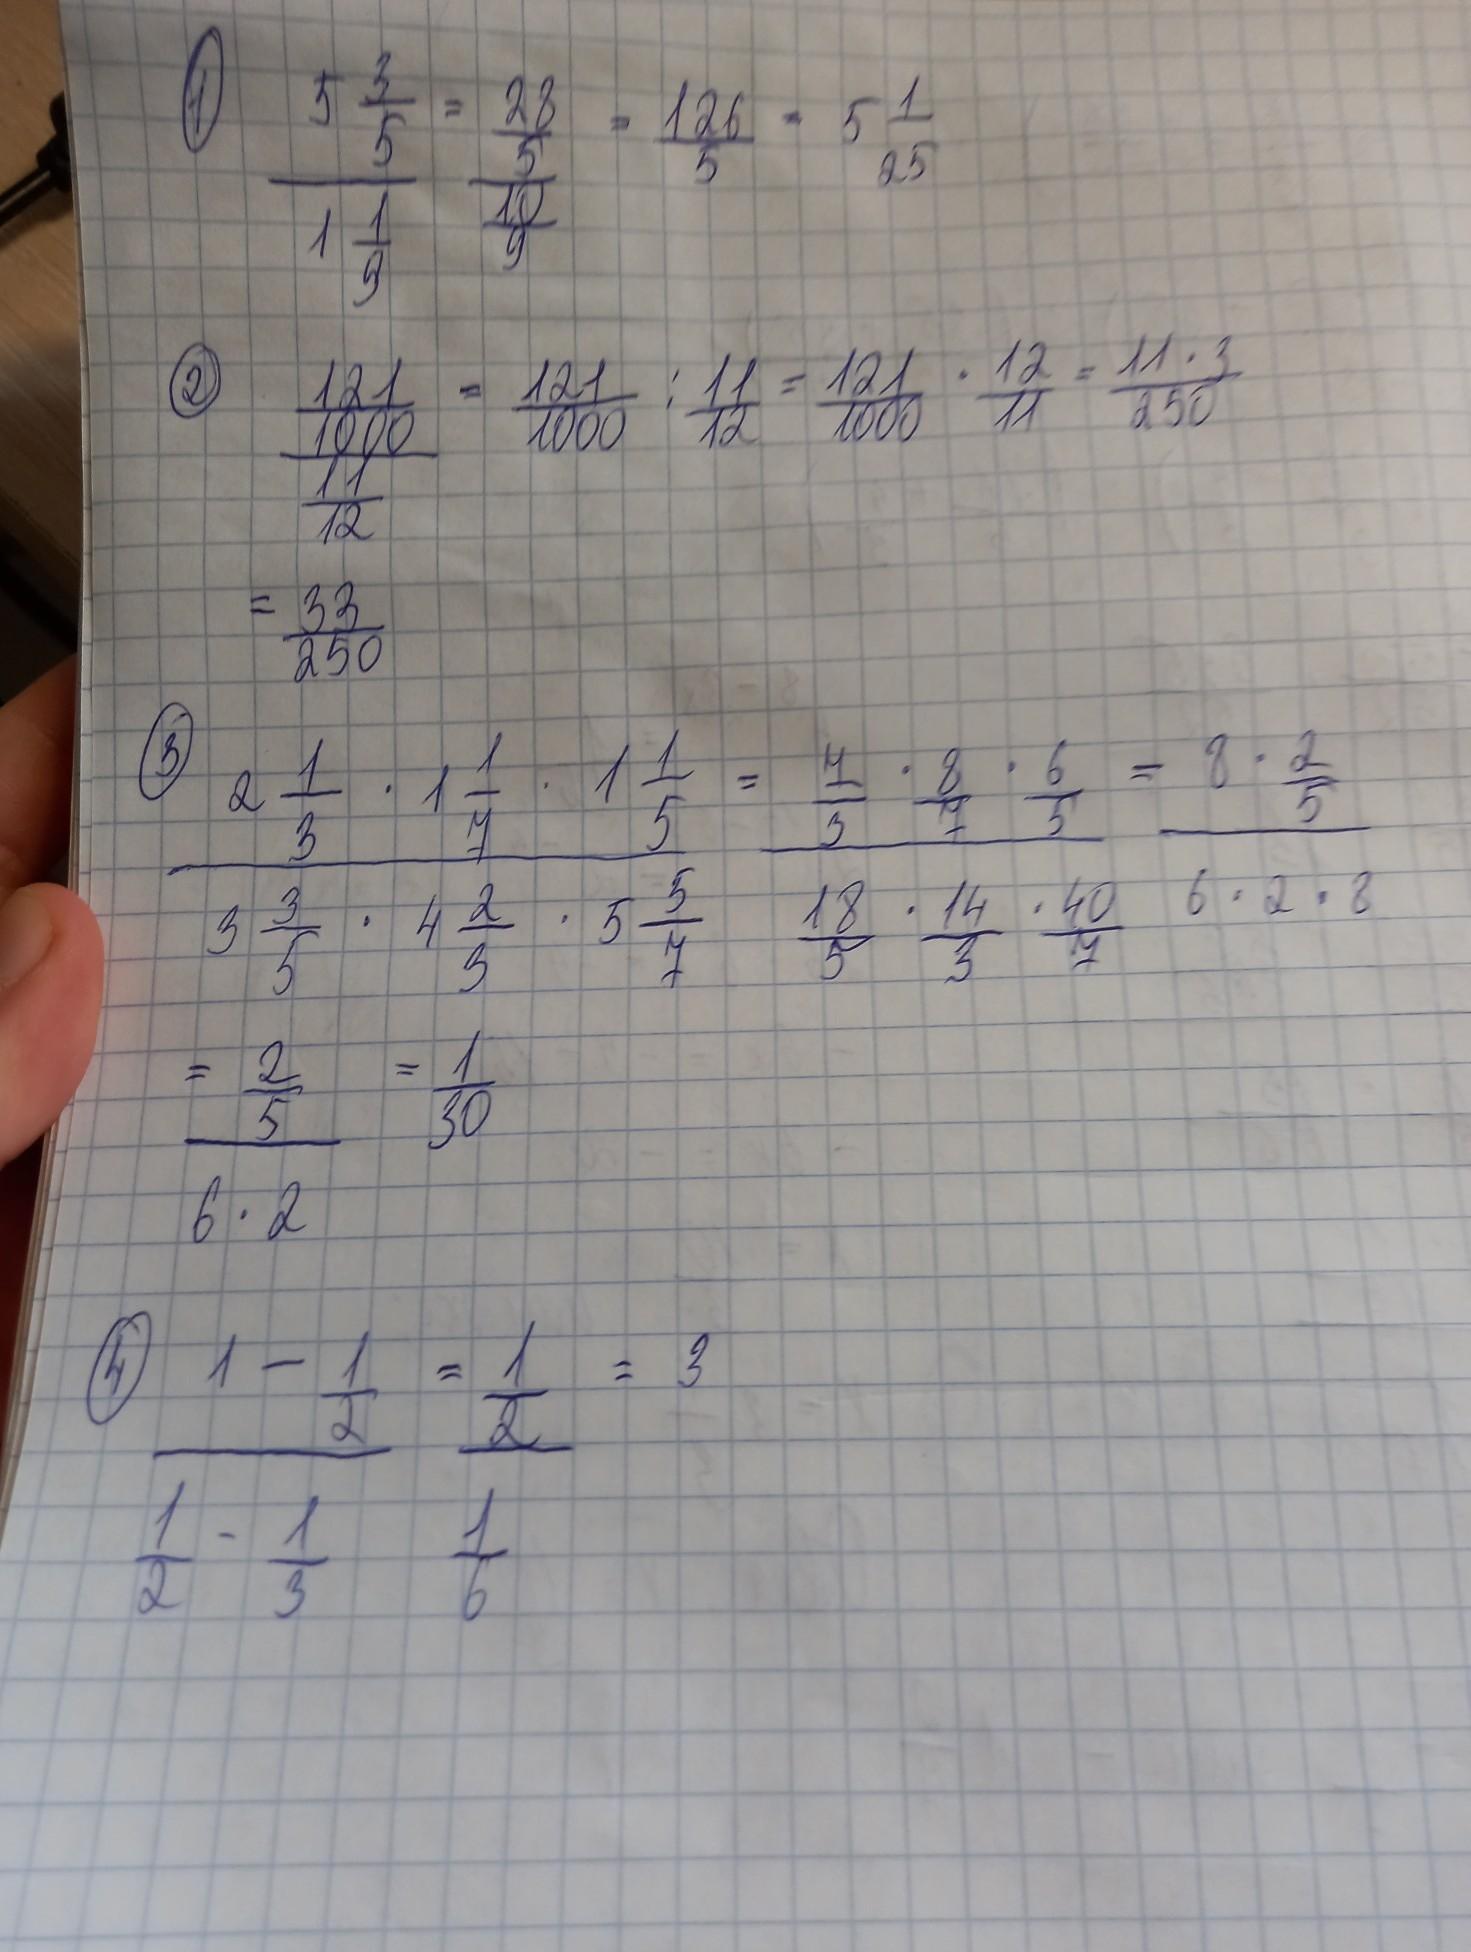 ① 5 3/5 / 1 1/9 = 28/5 / 10/9 = 126/5 = 5 1/25
② 121/1000 / 11/12 = 121/1000 : 11/12 = 121/1000 · 12/11 = 11 · 3/250
= 33/250
③ 2 1/3 · 1 1/7 · 1 1/5 / 3 3/5 · 4 2/3 · 5 5/7 = 7/3 · 8/7 · 6/5 / 18/5 · 14/3 · 40/7 = 8 · 2/5 / 6 · 2 · 8
= 2/5 / 6 · 2 = 1/30
④ 1 - 1/2 / 1/2 - 1/3 = 1/2 / 1/6 = 3